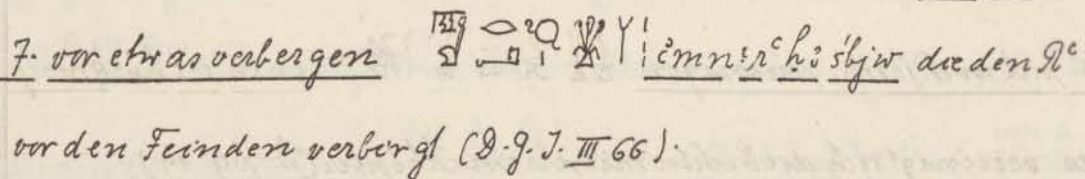 7. vor etwas verbergen i҆mn·t rꜥ ḥꜣ śbjw die den Rꜥ
vor den Feinden verbirgt (D. G. I. III 66).